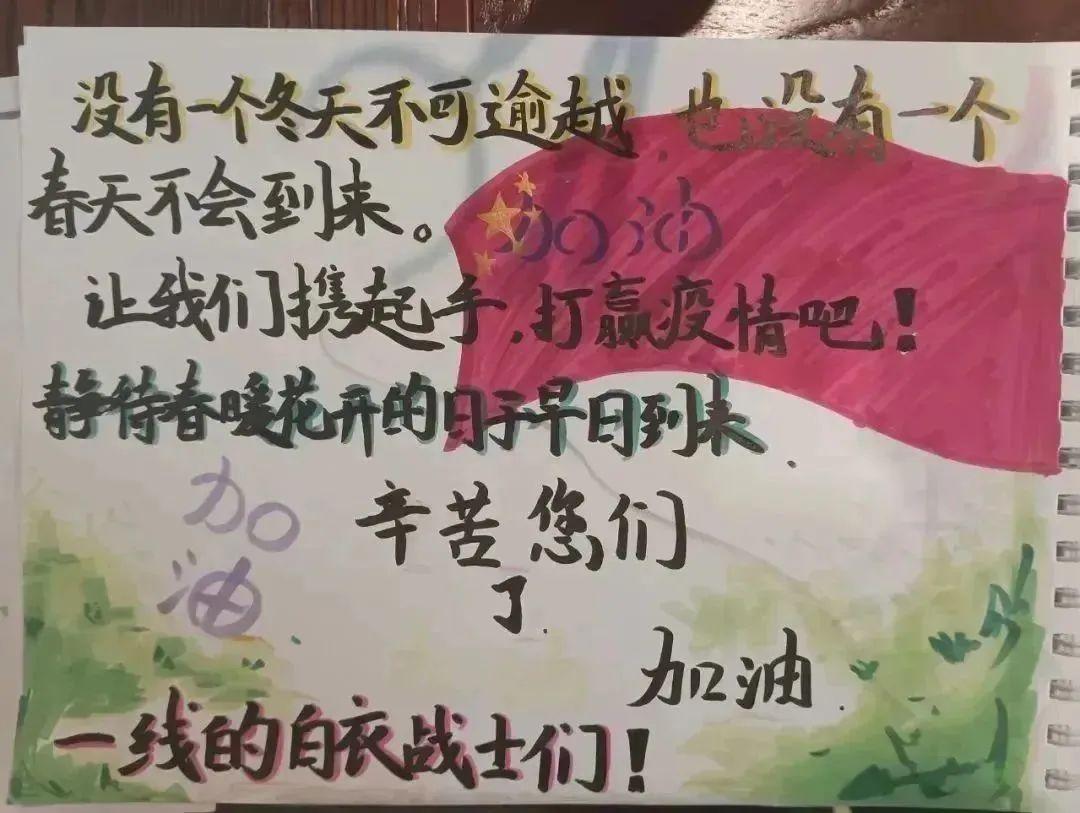 没有一个冬天不可逾越，也没有一个
春天不会到来。
加油
让我们携起手，打赢疫情吧！
静待春暖花开的日子早日到来．
加
油
辛苦您们
了．
加油．
一线的白衣战士们！